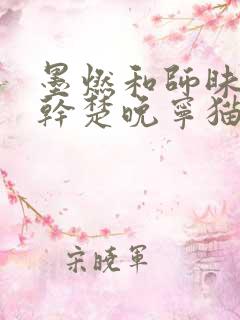 墨燃和師昧
幹楚晚寧猫
宋曉軍